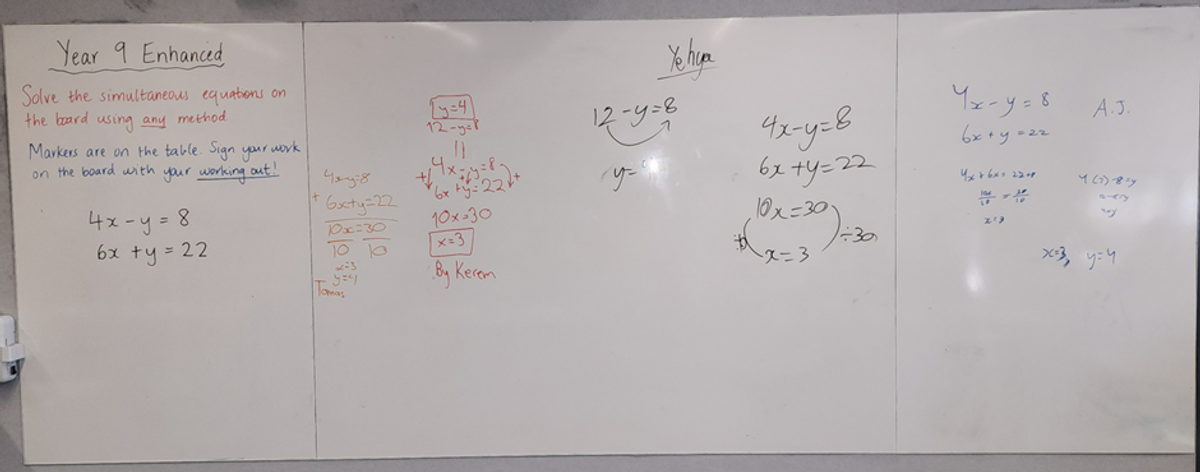 Year 9 Enhanced
Solve the simultaneous equations on
the board using any method
Markers are on the table. Sign your work
on the board with your working out!
4x - y = 8
6x + y = 22
4x-y=8
+ 6x+y=22
10x=30
10 10
x=3
y=4
Tomas
y=4
12-y=8
4x-y=8
+ 6x+y=22 +
10x=30
x=3
By Kerem
Yehya
12-y=8
y=
4x-y=8
6x+y=22
10x=30
÷30
x=3
4x-y=8
A.J.
6x+y=22
4x+6x=22+8
10x = 30
10 10
x=3
4(3)-8=y
4=y
x=3, y=4